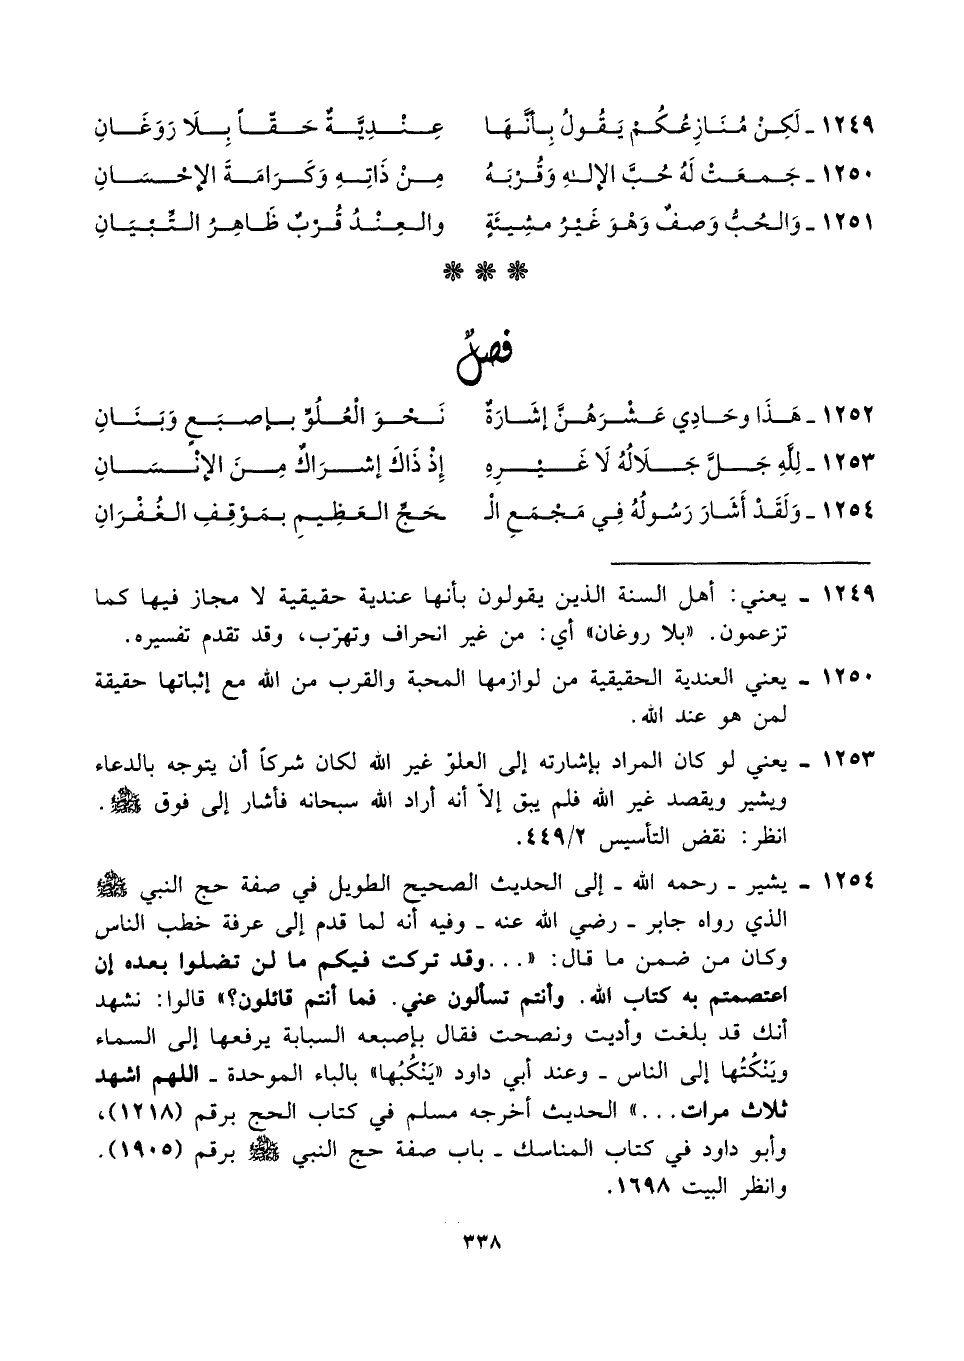 ١٢٤٩ ـ لَكِنْ مُنَازِعُكُمْ يَقُولُ بِأنَّهَا عِنْدِيَّةٌ حَقّاً بِلَا رَوَغَانِ
١٢٥٠ ـ جَمعَتْ لَهُ حُبَّ الإلهِ وَقُرْبَهُ مِنْ ذَاتِهِ وَكَرَامَةَ الإحْسَانِ
١٢٥١ ـ وَالحُبُّ وَصفٌ وَهْوَ غَيْرُ مشِيئَةٍ والعِنْدُ قُرْبٌ ظَاهِرُ التِّبْيَانِ
❊ ❊ ❊
فصلٌ
١٢٥٢ ـ هَذَا وحَادِي عَشْرَهُنَّ إشَارَةٌ نَحْوَ الْعُلُوِّ بإصْبَعٍ وَبَنَانِ
١٢٥٣ ـ لِلَّهِ جَلَّ جَلَالُهُ لَا غَيْرِهِ إذْ ذَاكَ إشْرَاكٌ مِنَ الإنْسَانِ
١٢٥٤ ـ وَلَقَدْ أَشَارَ رَسُولُهُ فِي مَجْمَعِ الْـ ـحَجِّ العَظِيمِ بمَوْقِفِ الغُفْرَانِ
١٢٤٩ ـ يعني: أهل السنة الذين يقولون بأنها عندية حقيقية لا مجاز فيها كما
تزعمون. «بلا روغان» أي: من غير انحراف وتهرّب، وقد تقدم تفسيره.
١٢٥٠ ـ يعني العندية الحقيقية من لوازمها المحبة والقرب من الله مع إثباتها حقيقة
لمن هو عند الله.
١٢٥٣ ـ يعني لو كان المراد بإشارته إلى العلوّ غير الله لكان شركاً أن يتوجه بالدعاء
ويشير ويقصد غير الله فلم يبق إلاّ أنه أراد الله سبحانه فأشار إلى فوق ﷺ.
انظر: نقض التأسيس ٤٤٩/٢.
١٢٥٤ ـ يشير ـ رحمه الله ـ إلى الحديث الصحيح الطويل في صفة حج النبي ﷺ
الذي رواه جابر ـ رضي الله عنه ـ وفيه أنه لما قدم إلى عرفة خطب الناس
وكان من ضمن ما قال: «...وقد تركت فيكم ما لن تضلوا بعده إن
اعتصمتم به كتاب الله. وأنتم تسألون عني. فما أنتم قائلون؟» قالوا: نشهد
أنك قد بلغت وأديت ونصحت فقال بإصبعه السبابة يرفعها إلى السماء
ويَنْكُتُها إلى الناس ـ وعند أبي داود «يَنْكُبُها» بالباء الموحدة ـ اللهم اشهد
ثلاث مرات...» الحديث أخرجه مسلم في كتاب الحج برقم (١٢١٨)،
وأبو داود في كتاب المناسك ـ باب صفة حج النبي ﷺ برقم (١٩٠٥).
وانظر البيت ١٦٩٨.
٣٣٨